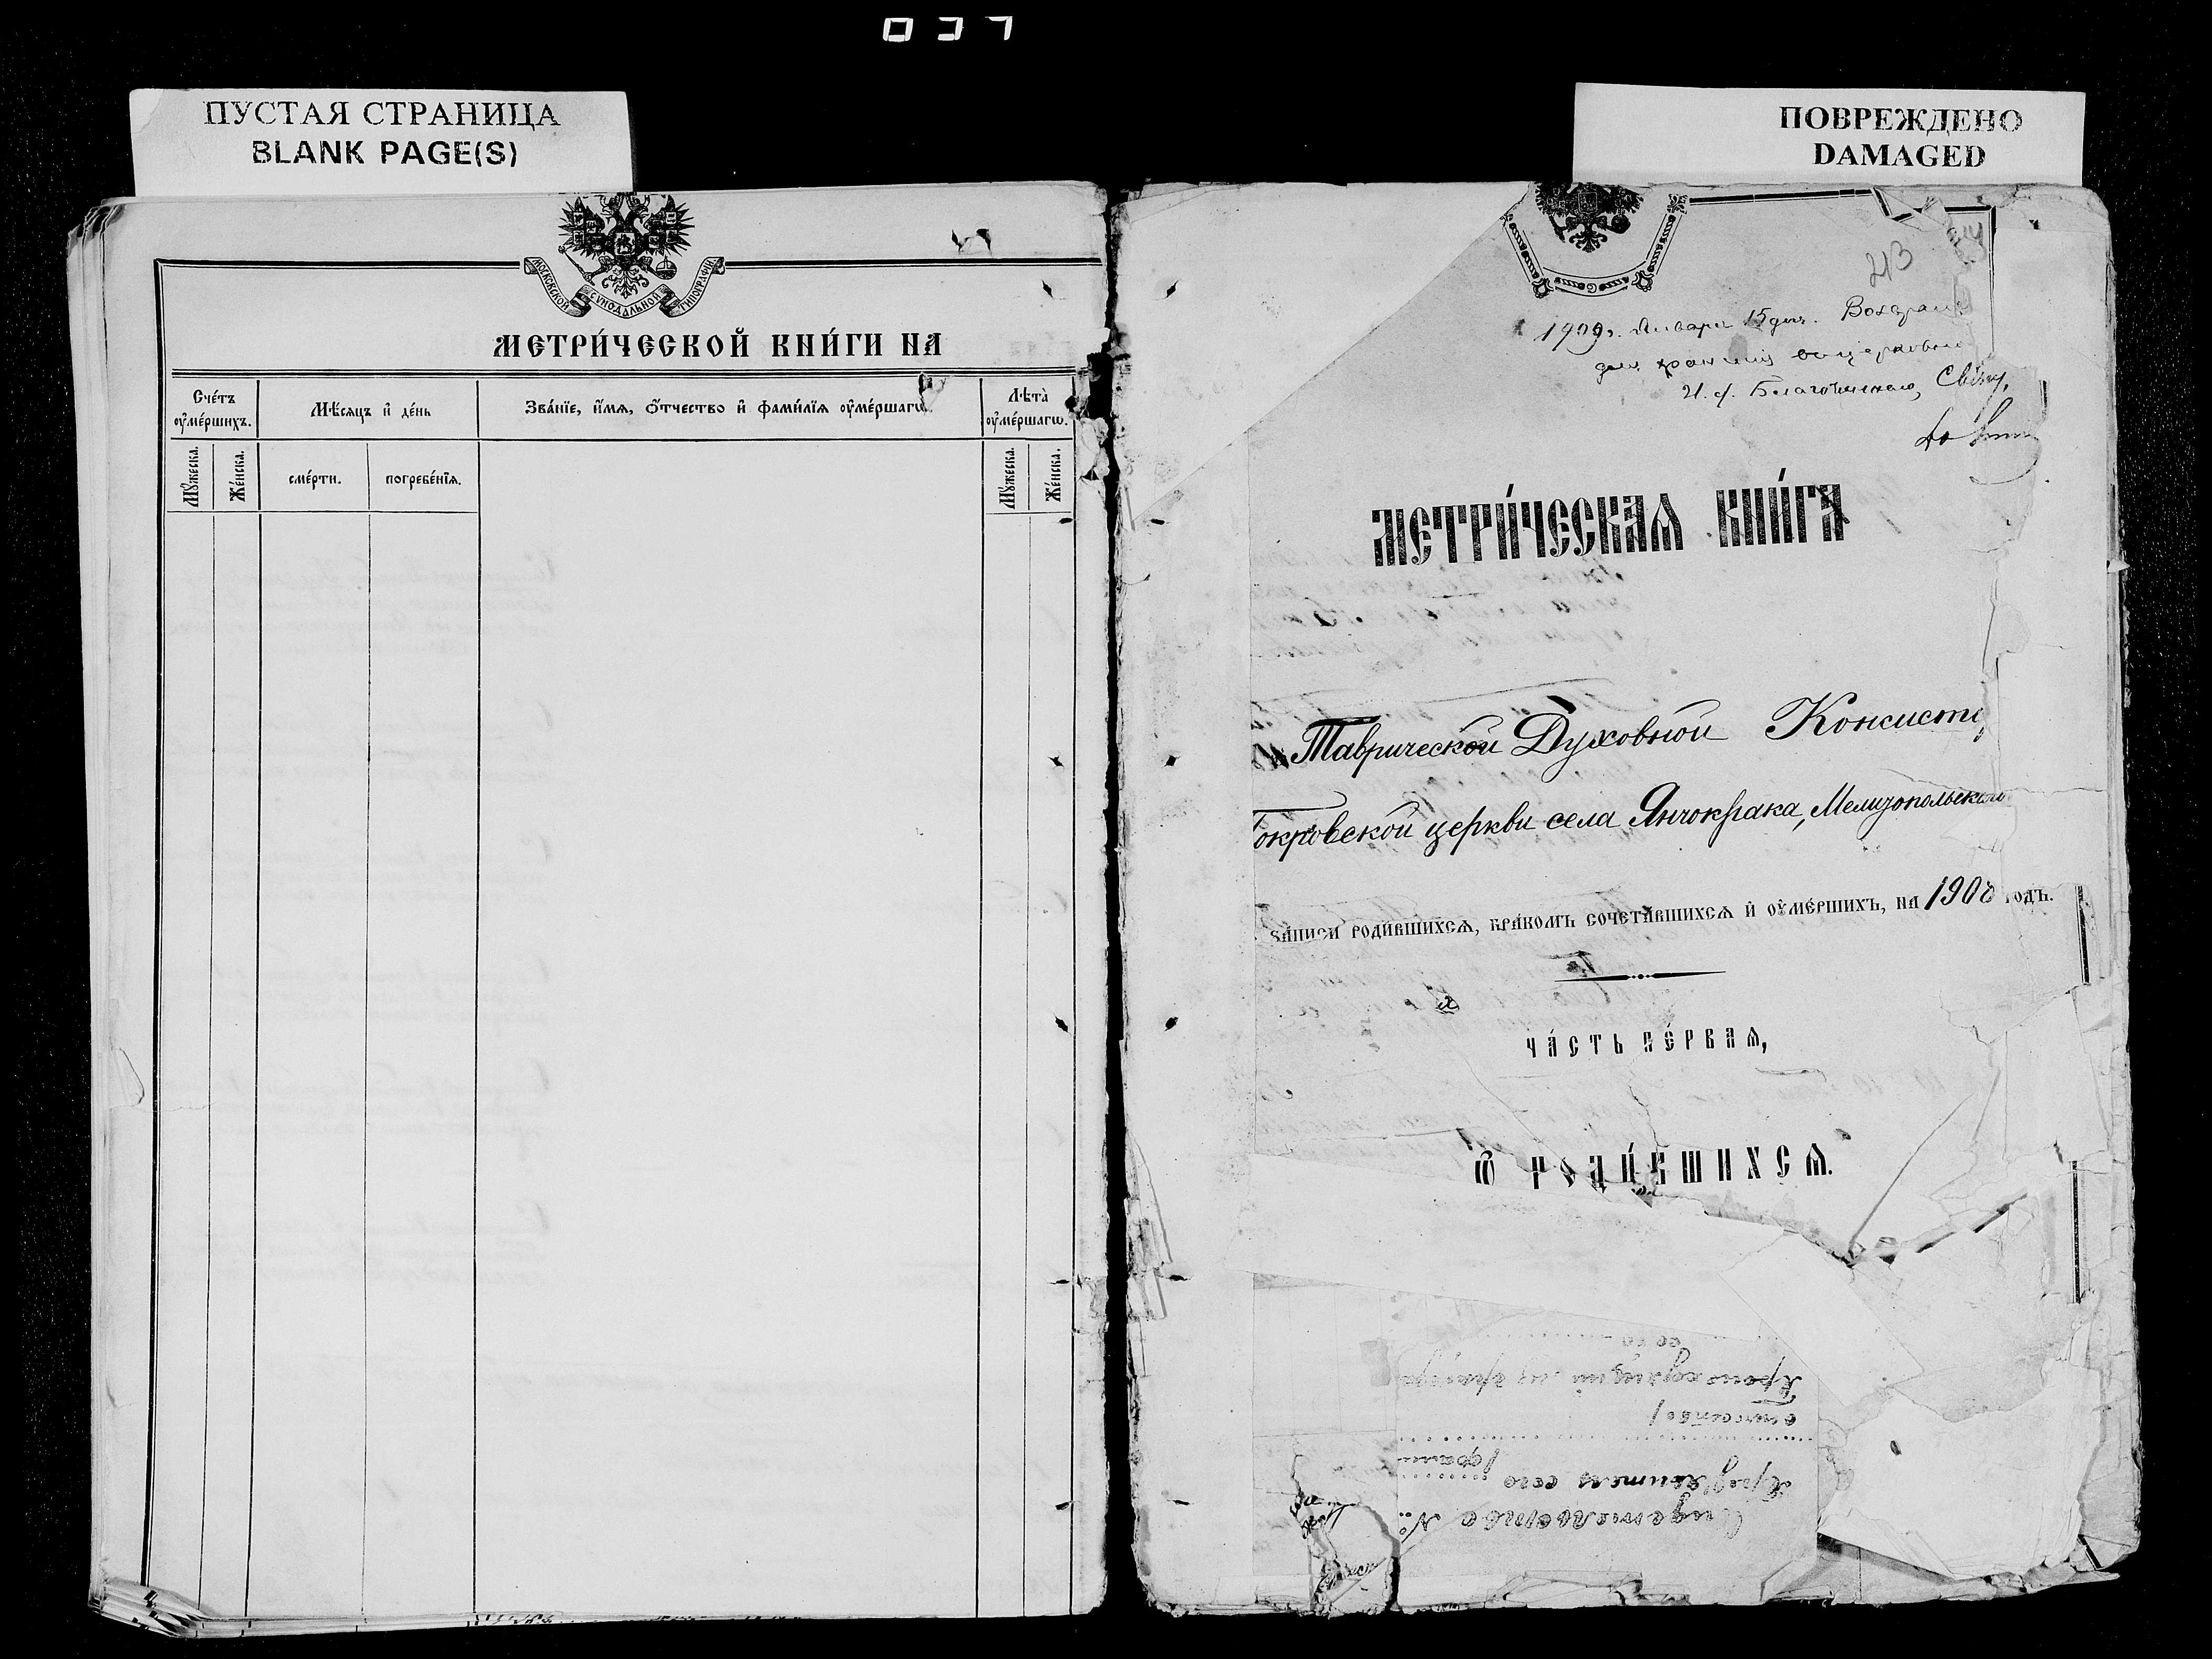 037
ПУСТАЯ СТРАНИЦА
BLANK PAGE(S)
МОСКОВСКОЙ СѴНОДАЛЬНОЙ ТИПОГРАФІИ
МЕТРИ́ЧЕСКОЙ КНИ́ГИ НА
Сче́тъ ᲂу҆ме́ршихъ.
Мѣ́сяцъ и҆ де́нь
Зва́нїе, и҆́мѧ, ѻ҆́тчество и҆ фами́лїѧ ᲂу҆ме́ршагѡ.
Лѣта̀ ᲂу҆ме́ршагѡ.
Мꙋ́жеска.
Же́нска.
сме́рти.
погребе́нїѧ.
Мꙋ́жеска.
Же́нска.
ПОВРЕЖДЕНО
DAMAGED
213
1909 г. Января 15 дня.
для хранения
И. д. Благочиннаго, Свящ.
МЕТРИ́ЧЕСКАѦ КНИ́ГА
Таврической Духовной Консисто
окровской церкви села Янчокрака, Мелитопольскаго
за́писи роди́вшихсѧ, бра́комъ сочета́вшихсѧ и҆ ᲂу҆ме́ршихъ, на 1908 годъ.
ЧА́СТЬ ПЕ́РВАѦ,
Ѡ҆ РОДИ́ВШИХСѦ.
сего
Происходящий из граждан
отчество)
(фами
Предъявитель сего
Свидетельство №